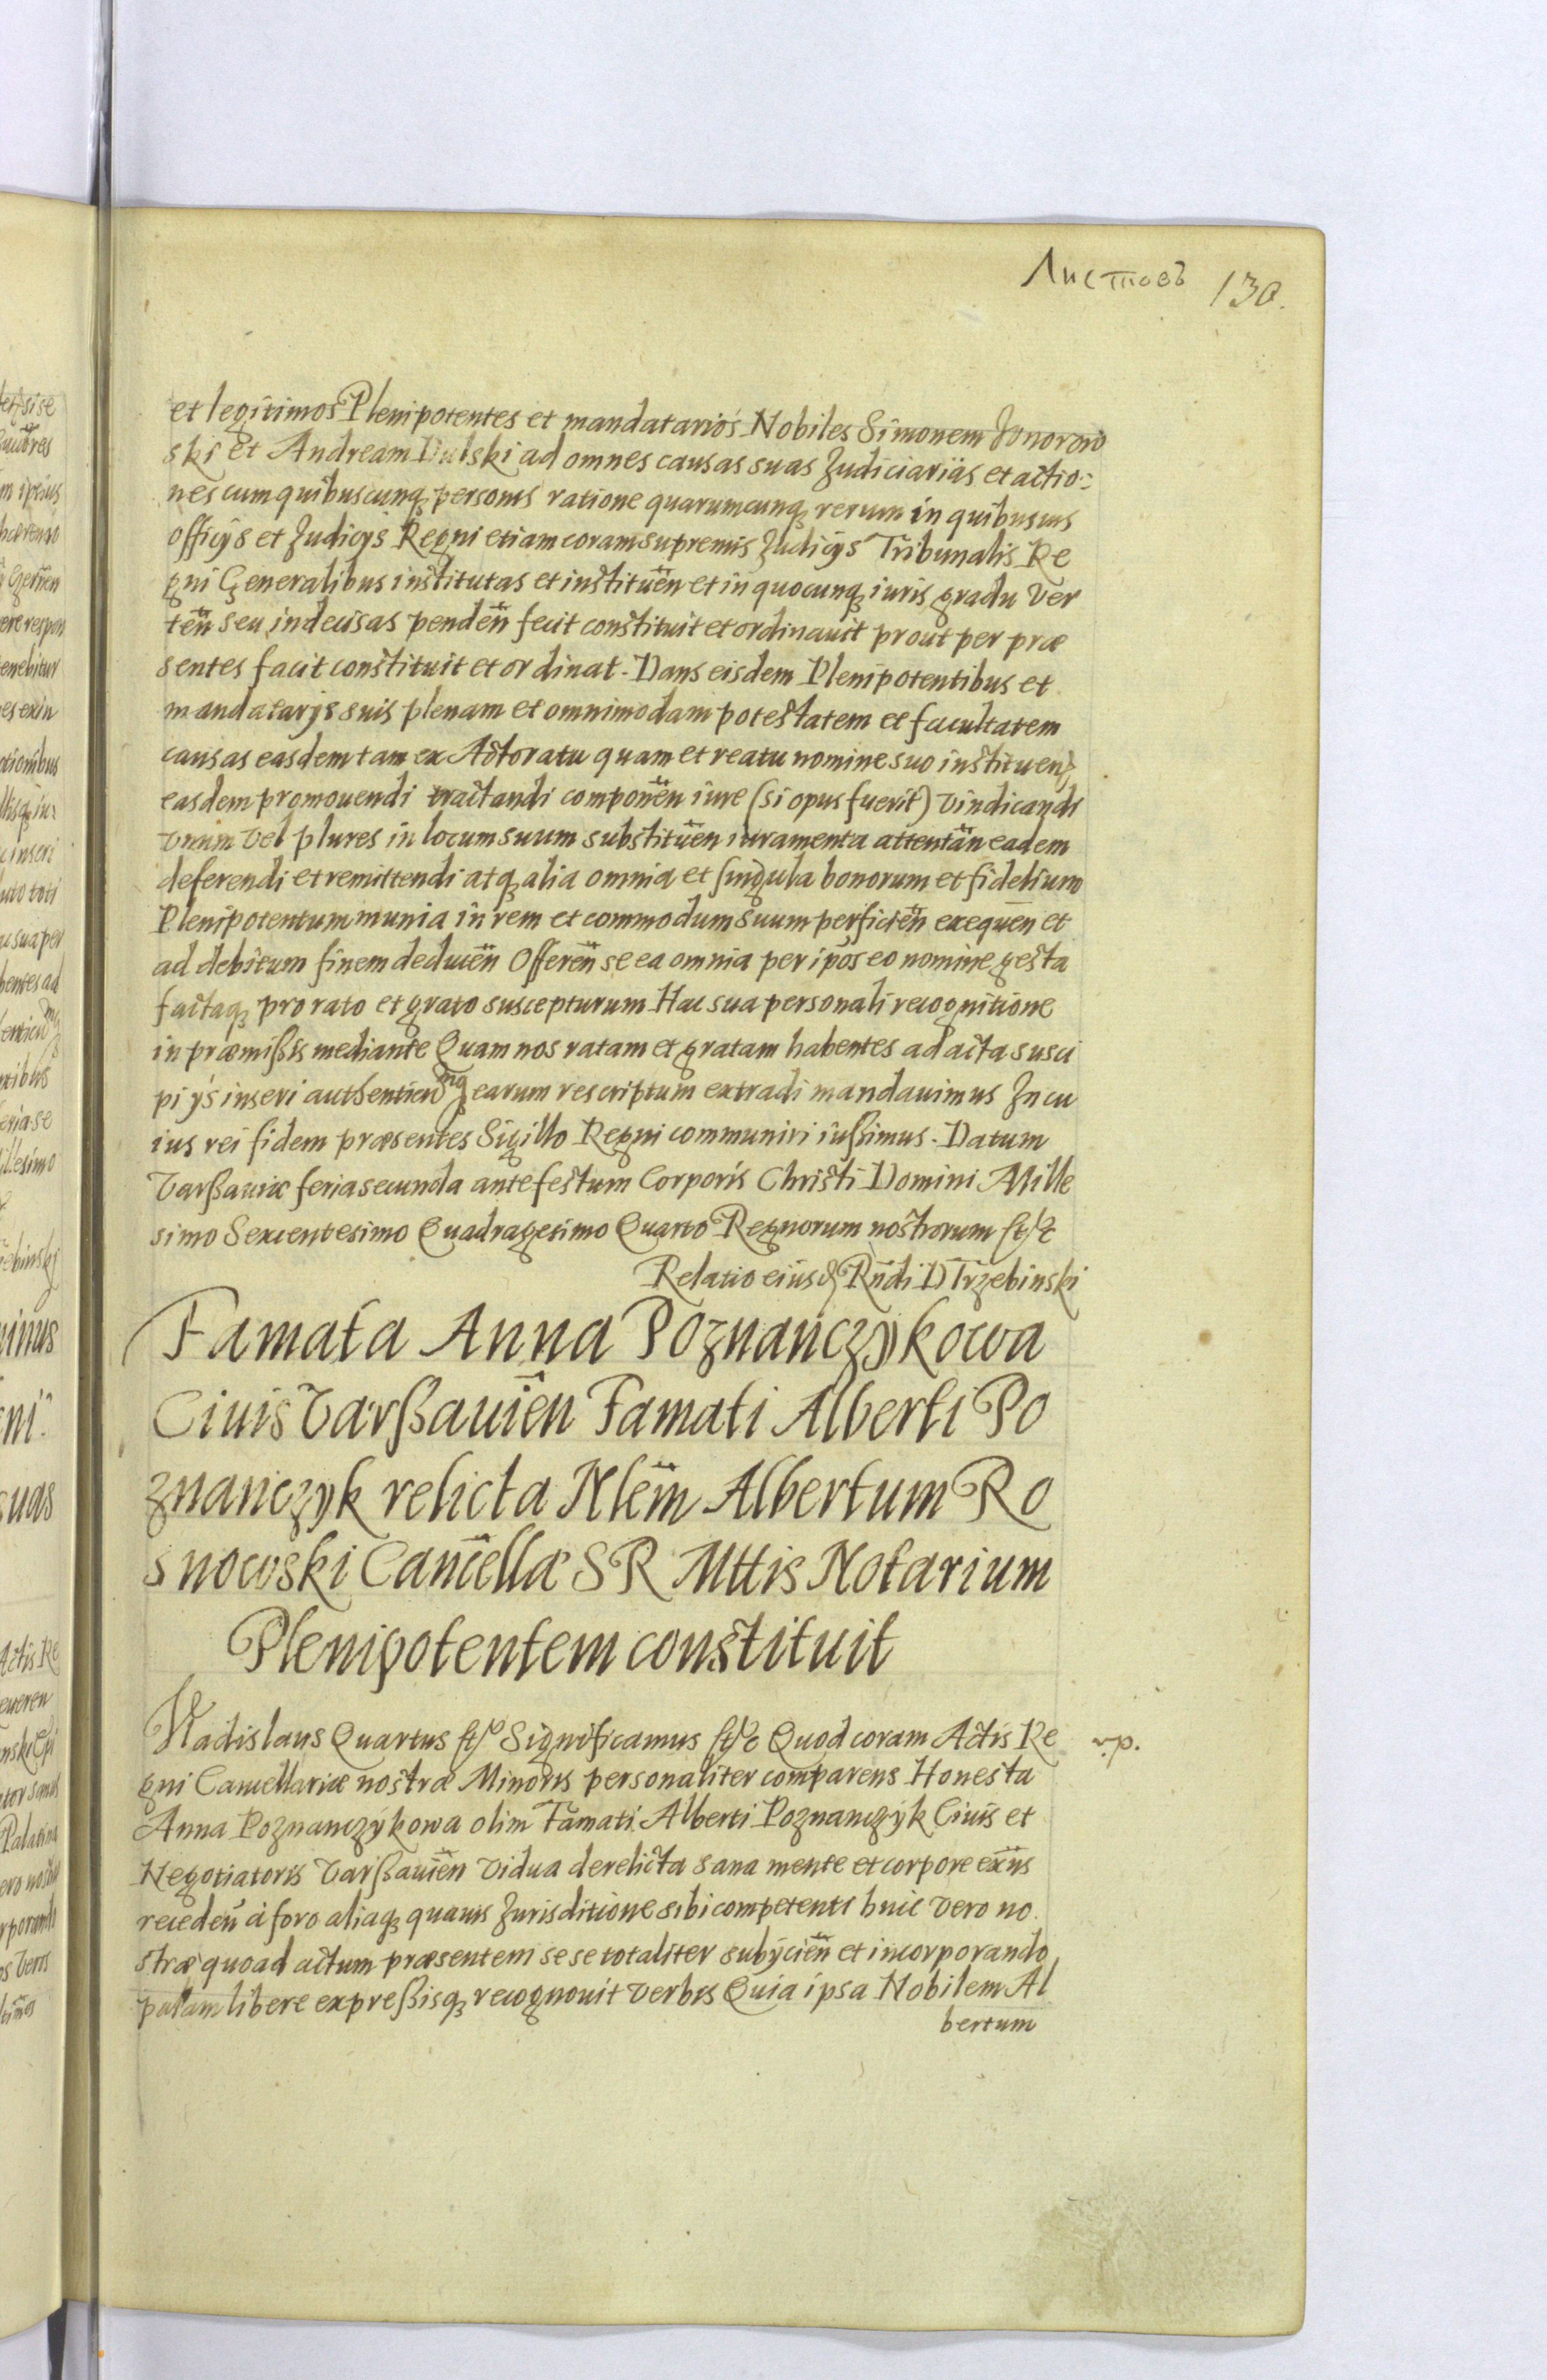 Листовъ 130.
et legitimos Plenipotentes et mandatarios Nobiles Simonem
ski et Andream Dulski ad omnes causas suas Judiciarias et actio:
nes cum quibuscunq personis ratione quarumcunq rerum in quibusuis
officijs et Judicijs Regni etiam coram supremis Judicijs Tribunalis Re
gni Generalibus institutas et instituen et in quocunq iuris gradu ver
ten seu indecisas penden fecit constituit et ordinauit prout per præ
sentes facit constituit et ordinat. Dans eisdem Plenipotentibus et
mandatarijs suis plenam et omnimodam potestatem et facultatem
causas easdem tam ex Actoratu quam et reatu nomine suo instituen
easdem promouendi tractandi componen iure (si opus fuerit) vindicandi
vnum vel plures in locum suum substituen iuramenta attentan eadem
deferendi et remittendi atq alia omnia et singula bonorum et fidelium
Plenipotentum munia in rem et commodum suum perficien exequen et
ad debitum finem deducen Offeren se ea omnia per ipos eo nomine gesta
factaq pro rato et grato suscepturum Hac sua personali recognitione
in præmißis mediante Quam nos ratam et gratam habentes ad acta susci
pi ijs inseri authenticumq earum rescriptum extradi mandauimus In cu
ius rei fidem præsentes Sigillo Regni communiri iußimus. Datum
Varßauiæ feria secunda ante festum Corporis Christi Domini Mille
simo Sexcentesimo Quadragesimo Quarto Regnorum nostrorum etc
Relatio eiusd Rndi D Trzebinski
Famata Anna Poznanczykowa
Ciuis Varßauien Famati Alberti Po
znanczyk relicta Nlem Albertum Ro
snowski Cancellæ SR Mttis Notarium
Plenipotentem constituit
Vladislaus Quartus etc Significamus etc Quod coram Actis Re v.p.
gni Cancellariæ nostræ Minoris personaliter comparens Honesta
Anna Poznanczykowa olim Famati Alberti Poznanczyk Ciuis et
Negotiatoris Varßauien Vidua derelicta sana mente et corpore exiis
receden à foro aliaq quauis Jurisditione sibi competenti huic vero no
stræ quoad actum præsentem sese totaliter subijcien et incorporando
palam libere expreßisq recognouit verbis Quia ipsa Nobilem Al
bertum